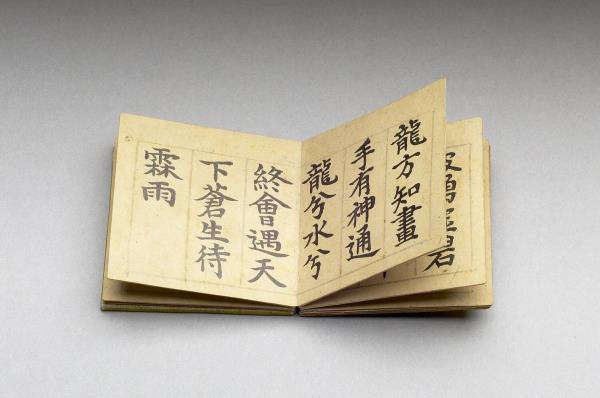 龍方知畫
手有神通
龍兮水兮
終會遇天
下蒼生待
霖雨